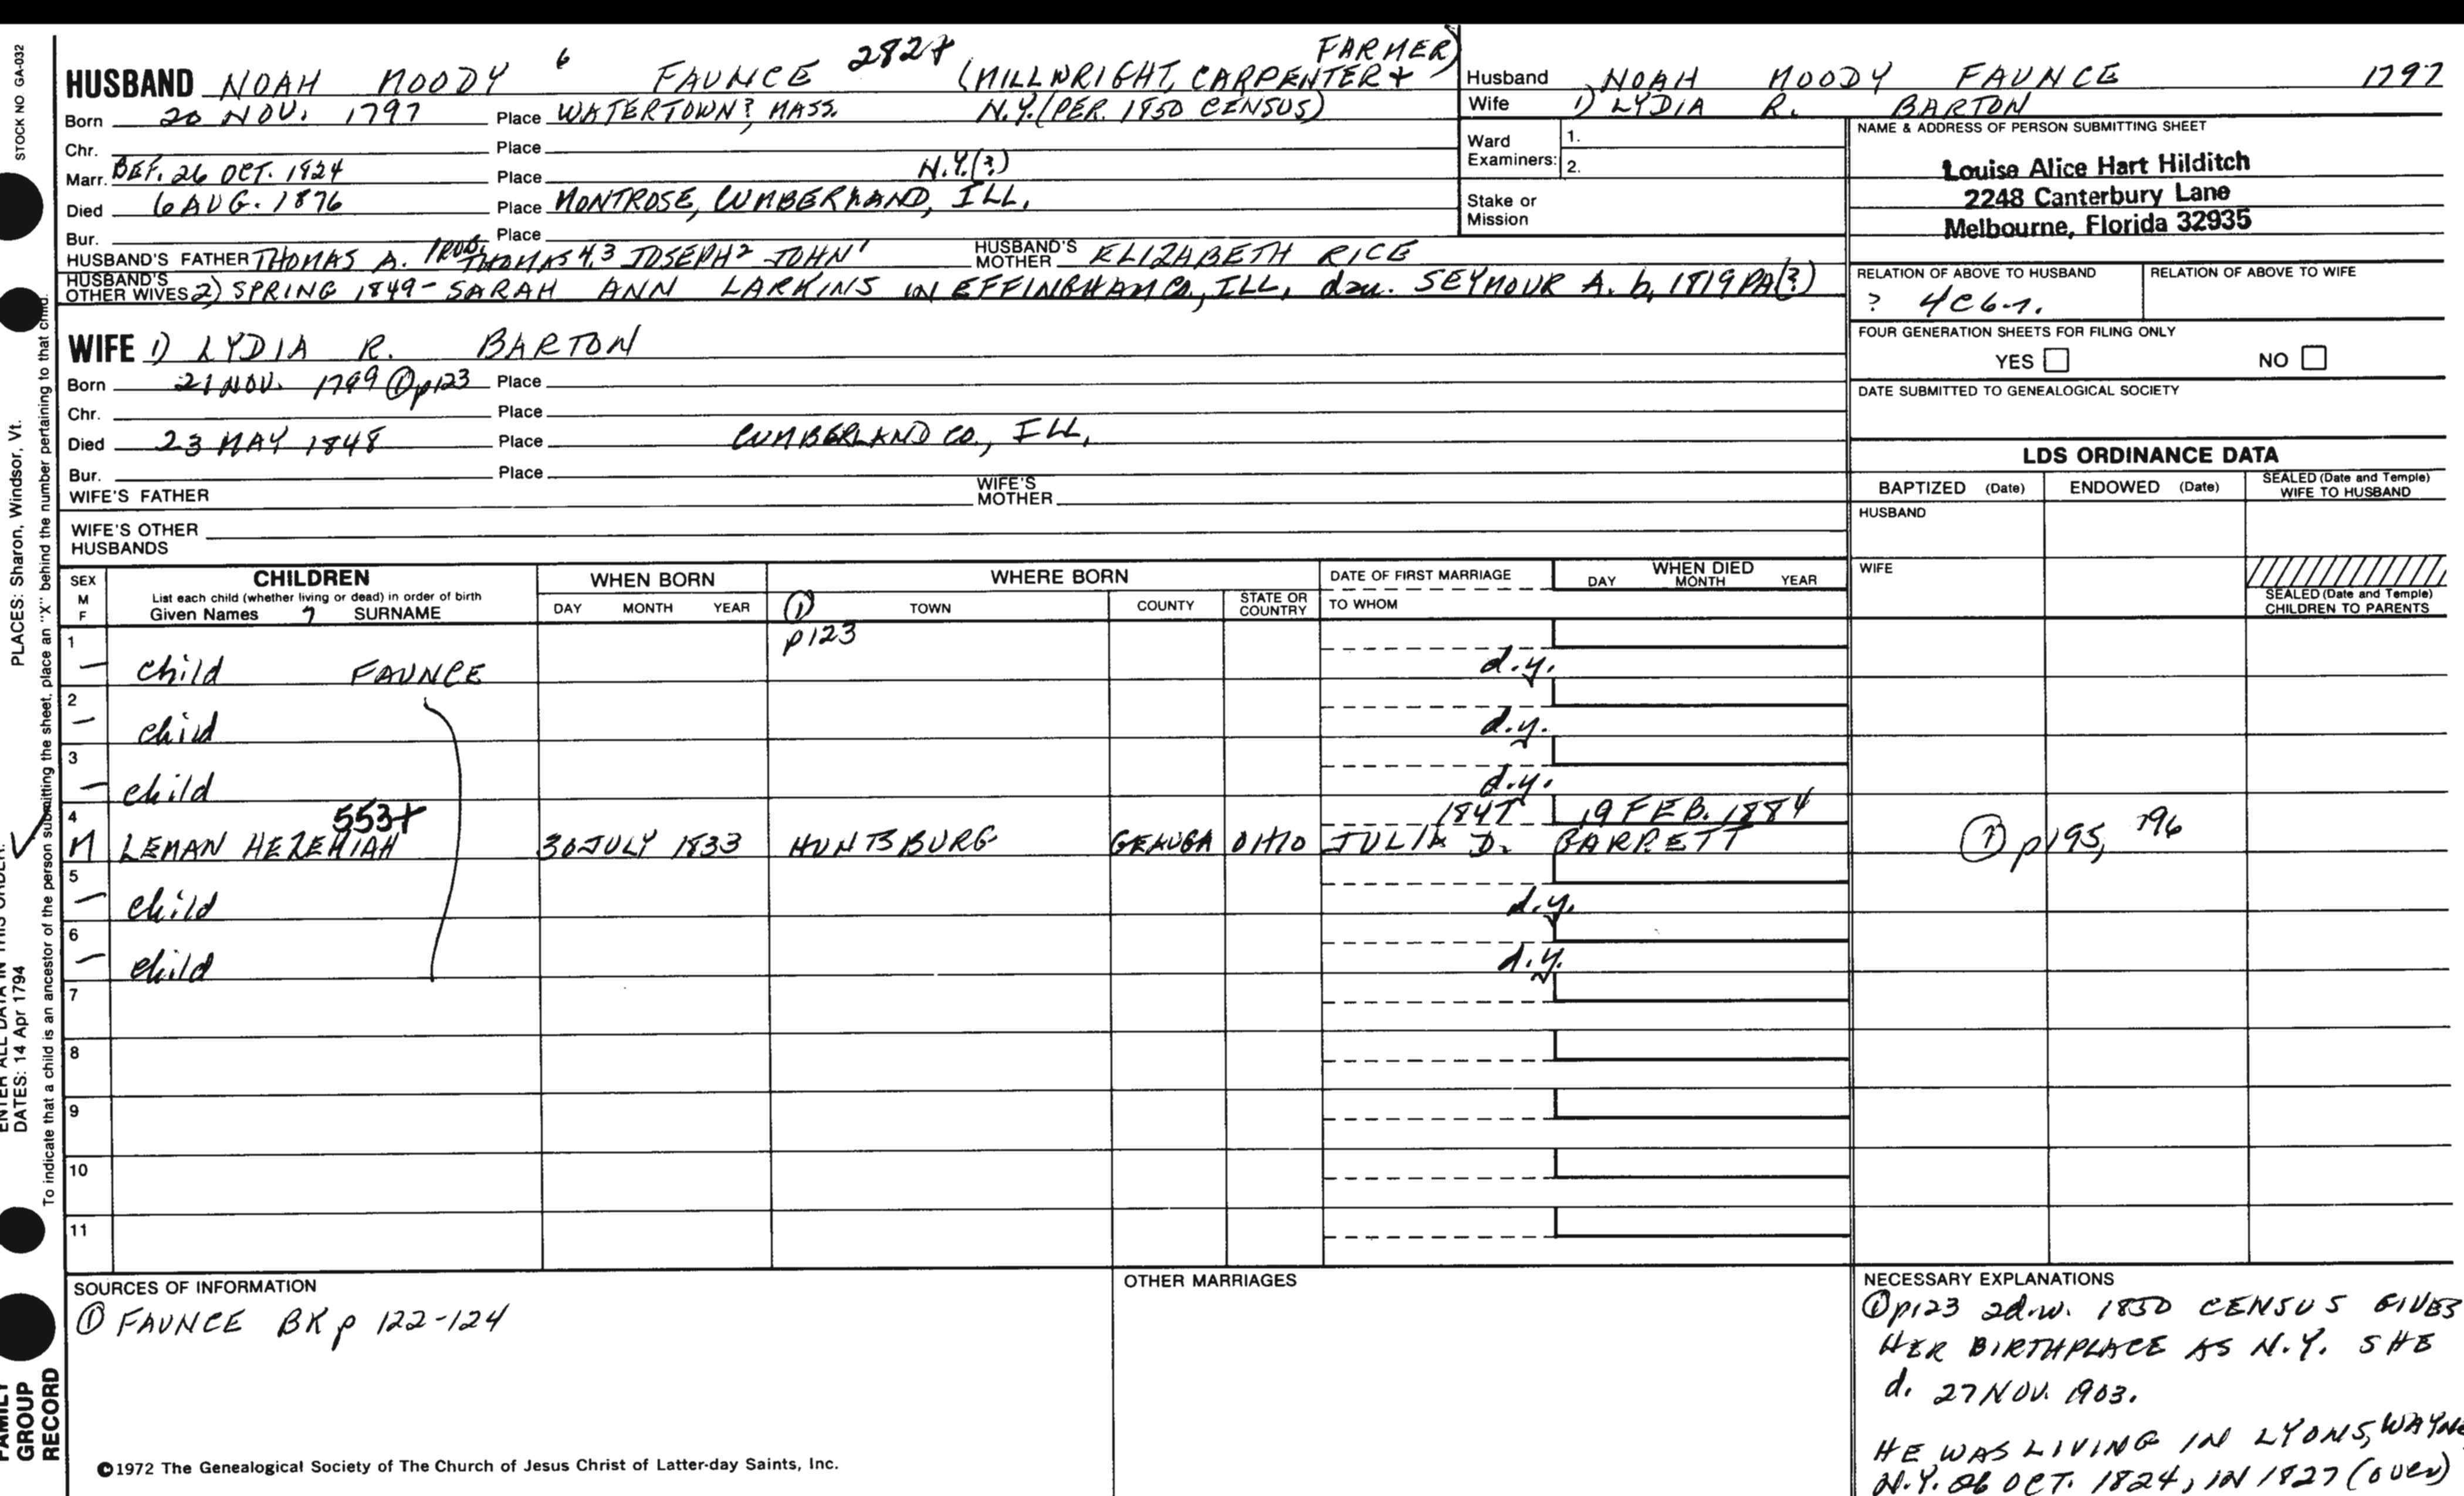 STOCK NO GA-032
PLACES: Sharon, Windsor, Vt.
ENTER ALL DATA IN THIS ORDER:
DATES: 14 Apr 1794
To indicate that a child is an ancestor of the person submitting the sheet, place an "X" behind the number pertaining to that child.
FAMILY
GROUP
RECORD
HUSBAND NOAH MOODY 6 FAUNCE 282+ (MILLWRIGHT, CARPENTER + FARMER)
Born 20 NOV. 1797 Place WATERTOWN? MASS. N.Y. (PER. 1850 CENSUS)
Chr. Place
Marr. BEF. 26 OCT. 1824 Place N.Y.(?)
Died 6 AUG. 1876 Place MONTROSE, CUMBERLAND, ILL.
Bur. Place
HUSBAND'S FATHER THOMAS A. PROB. THOMAS 4,3 JOSEPH2 JOHN1 HUSBAND'S MOTHER ELIZABETH RICE
HUSBAND'S OTHER WIVES 2) SPRING 1849 - SARAH ANN LARKINS IN EFFINGHAM CO., ILL, dau. SEYMOUR A. b, 1819 PA(?)
WIFE 1) LYDIA R. BARTON
Born 21 NOV. 1799 ① p123 Place
Chr. Place
Died 23 MAY 1848 Place CUMBERLAND CO., ILL.
Bur. Place
WIFE'S FATHER WIFE'S MOTHER
WIFE'S OTHER HUSBANDS
Husband NOAH MOODY FAUNCE 1797
Wife 1) LYDIA R. BARTON
Ward Examiners: 1.
2.
Stake or Mission
NAME & ADDRESS OF PERSON SUBMITTING SHEET
Louise Alice Hart Hilditch
2248 Canterbury Lane
Melbourne, Florida 32935
RELATION OF ABOVE TO HUSBAND RELATION OF ABOVE TO WIFE
? 4C6-r.
FOUR GENERATION SHEETS FOR FILING ONLY
YES NO
DATE SUBMITTED TO GENEALOGICAL SOCIETY
LDS ORDINANCE DATA
BAPTIZED (Date) ENDOWED (Date) SEALED (Date and Temple) WIFE TO HUSBAND
HUSBAND
WIFE
SEALED (Date and Temple) CHILDREN TO PARENTS
SEX M F
CHILDREN
List each child (whether living or dead) in order of birth
Given Names 7 SURNAME
WHEN BORN
DAY MONTH YEAR
WHERE BORN
TOWN COUNTY STATE OR COUNTRY
DATE OF FIRST MARRIAGE
TO WHOM
WHEN DIED
DAY MONTH YEAR
① p123
1 — child FAUNCE d.y.
2 — child d.y.
3 — child d.y.
4 553+ 1847 19 FEB. 1884
M LEMAN HEZEKIAH 30 JULY 1833 HUNTSBURG GEAUGA OHIO JULIA D. BARRETT ① p195, 196
5 — child d.y.
6 — child d.y.
7
8
9
10
11
SOURCES OF INFORMATION
① FAUNCE BK p 122-124
©1972 The Genealogical Society of The Church of Jesus Christ of Latter-day Saints, Inc.
OTHER MARRIAGES
NECESSARY EXPLANATIONS
① p123 2d.w. 1850 CENSUS GIVES
HER BIRTHPLACE AS N.Y. SHE
d. 27 NOV. 1903.
HE WAS LIVING IN LYONS, WAYNE
N.Y. 26 OCT. 1824, IN 1827 (over)